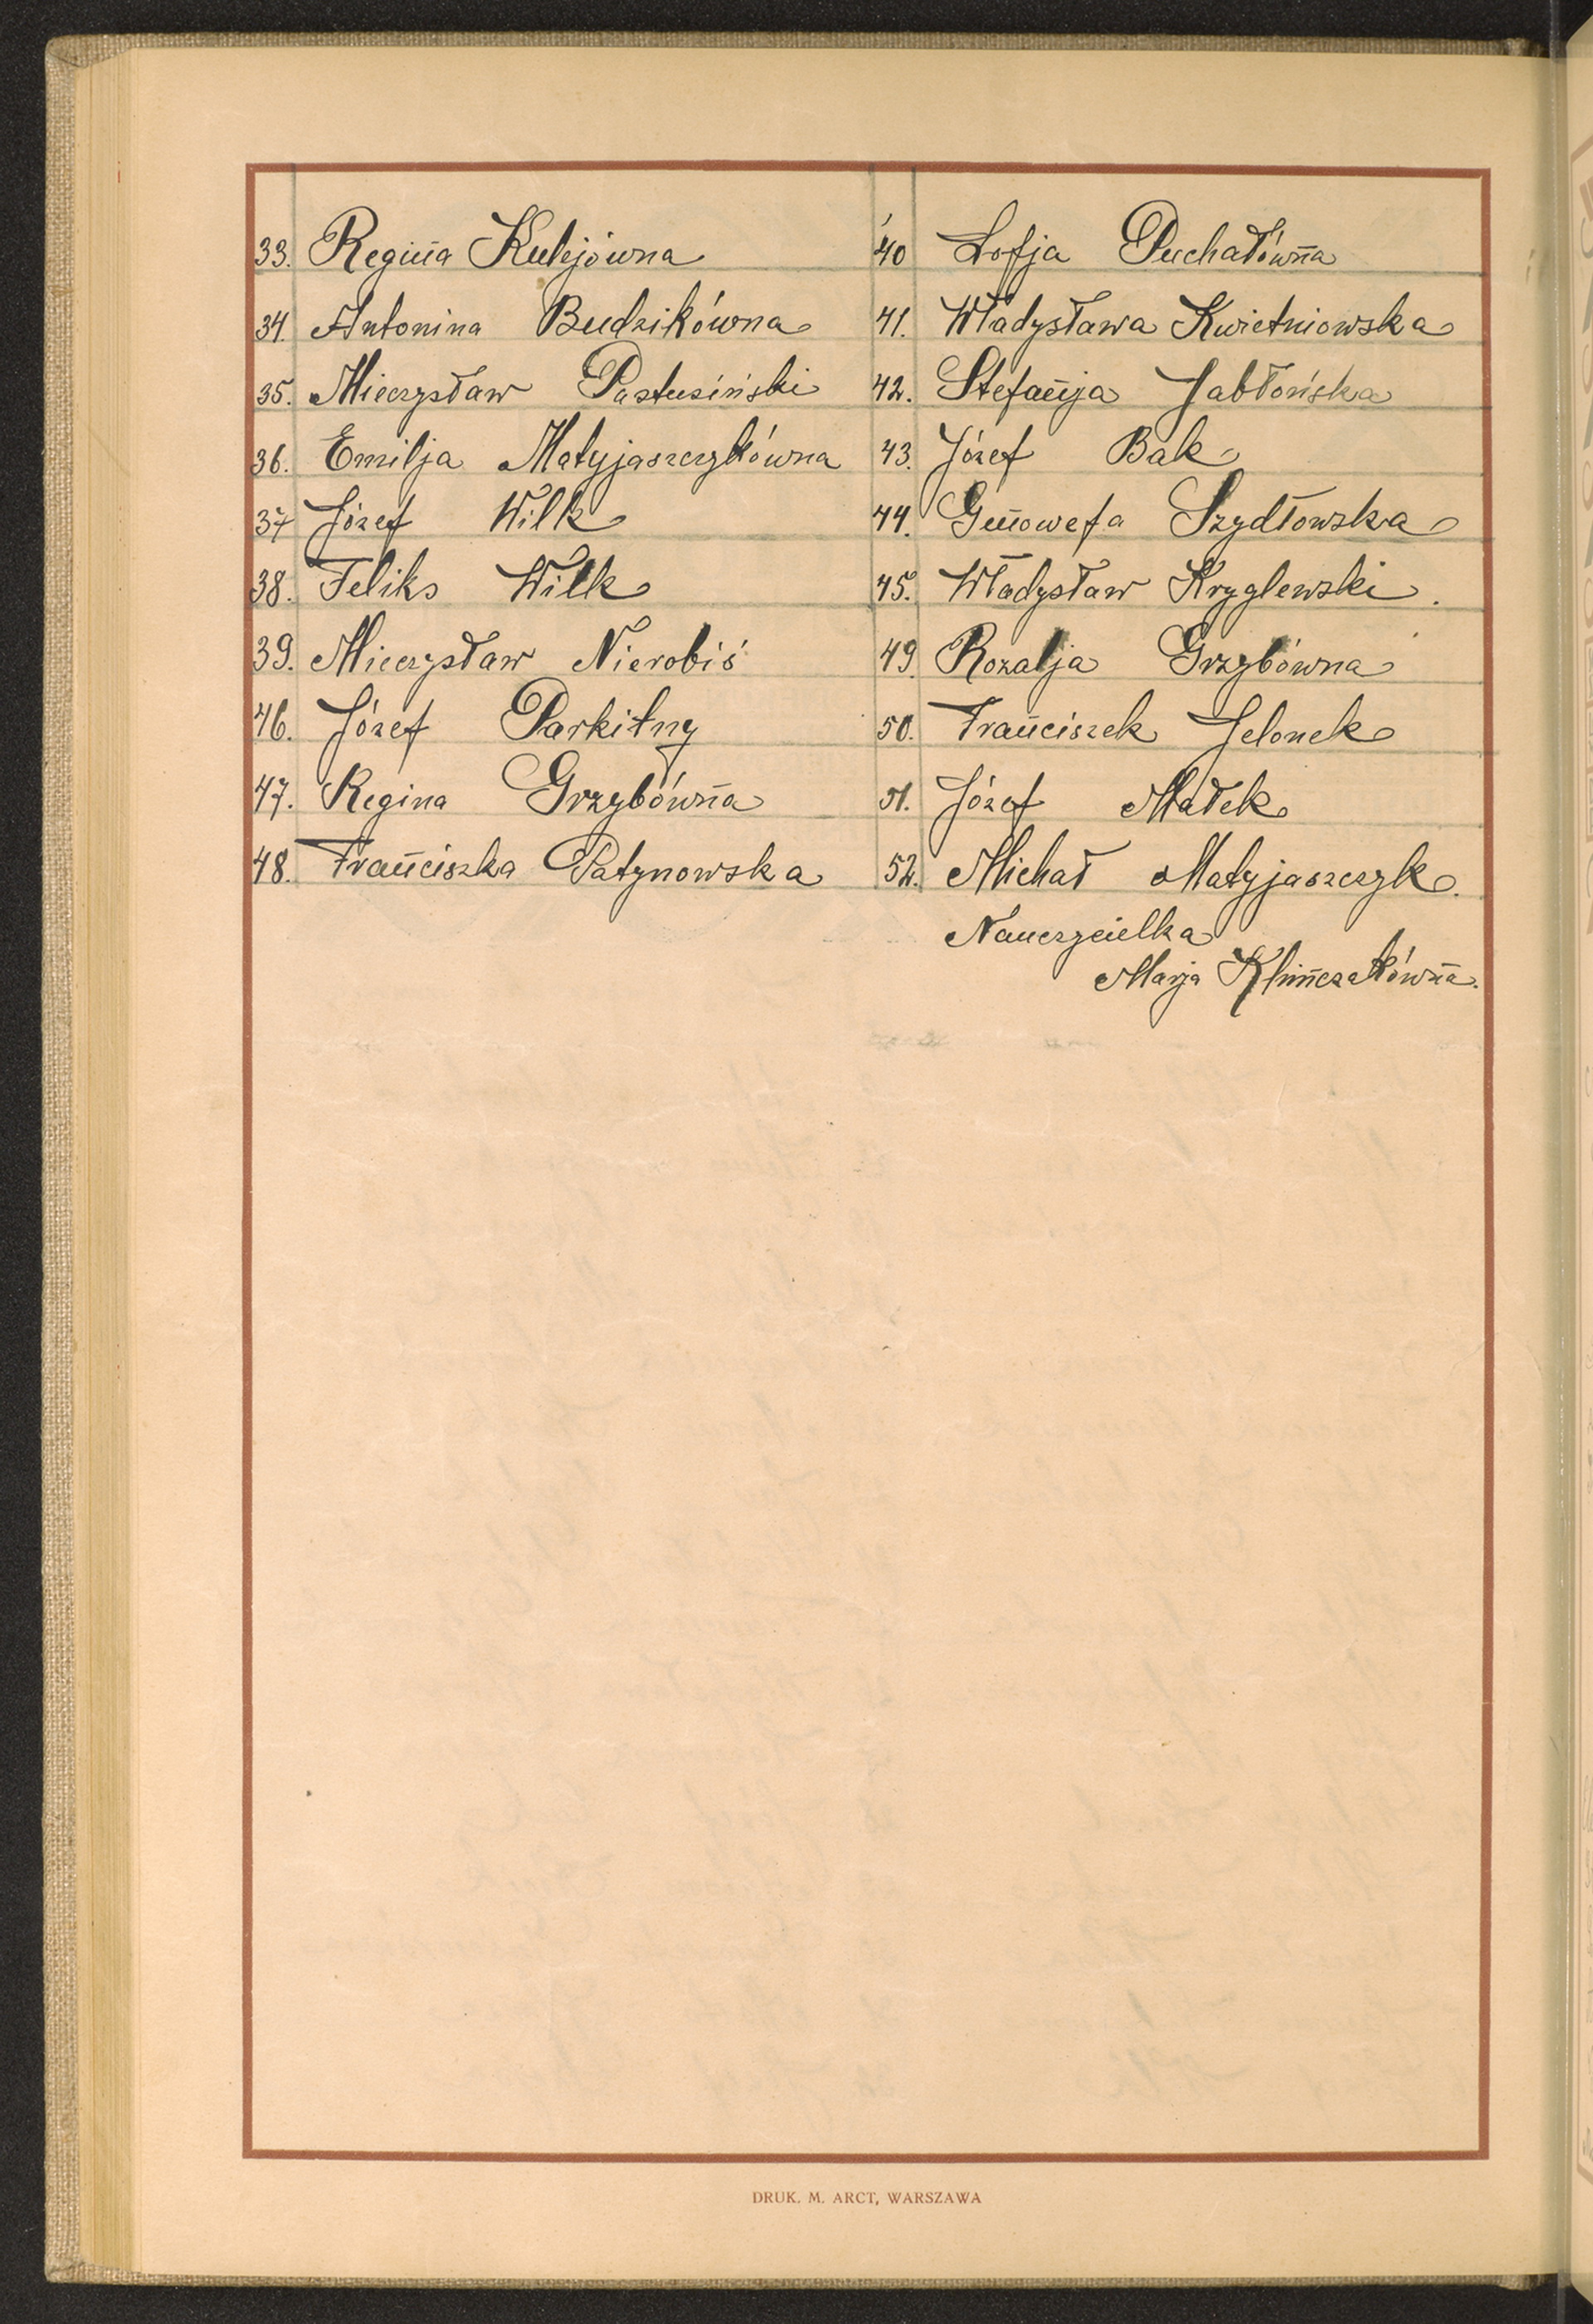 33. Regina Kulejówna
34. Antonina Budzikówna
35. Mieczysław Pastusiński
36. Emilja Matyjaszczykówna
37 Józef Wilk
38. Feliks Wilk
39. Mieczysław Nierobiś
46. Józef Parkitny
47. Regina Grzybówna
48. Franciszka Patynowska
40 Zofja Puchałówna
41. Władysława Kwietniowska
42. Stefanja Jabłońska
43. Józef Bak
44. Genowefa Szydłowska
45. Władysław Kryglewski.
49. Rozalja Grzybówna
50. Franciszek Jelonek
51. Józef Małek
52. Michał Matyjaszczyk.
Nauczycielka
Marja Klimczakówna.
DRUK. M. ARCT, WARSZAWA